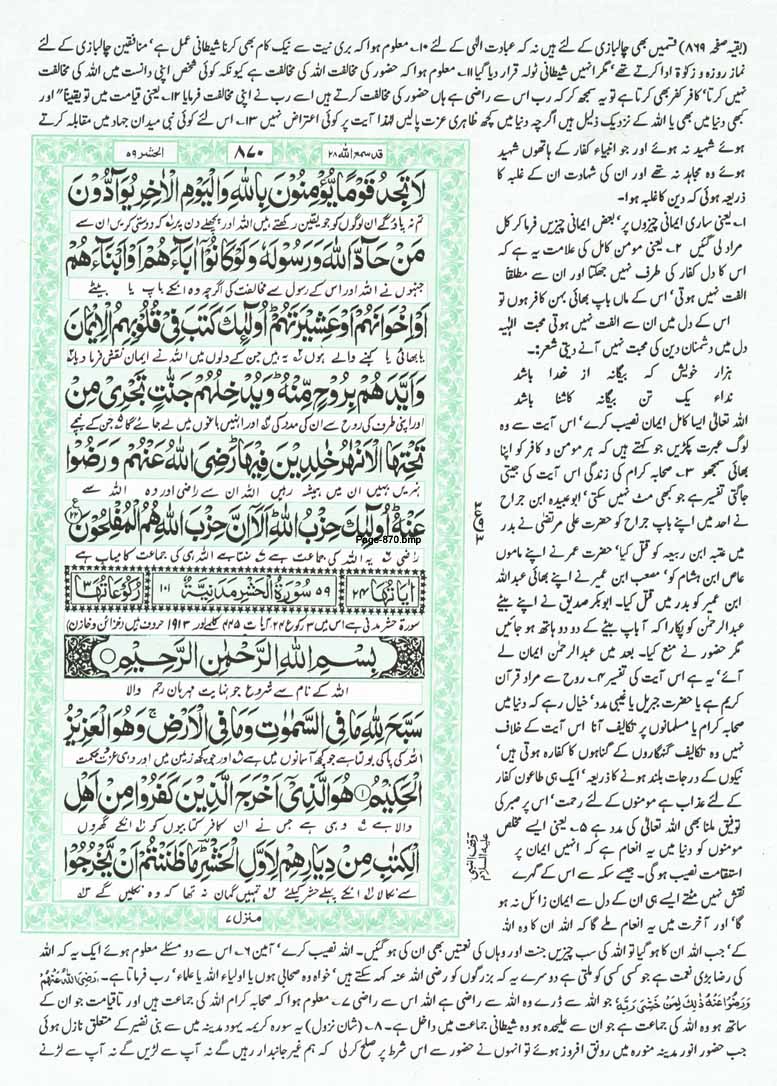 (بقیہ صفحہ ۸۶۹) قسمیں بھی چالبازی کے لئے ہیں نہ کہ عبادت الٰہی کے لئے ۱۰۔ معلوم ہوا کہ بری نیت سے نیک کام بھی کرنا شیطانی عمل ہے، منافقین چالبازی کے لئے
نماز روزہ و زکوٰۃ ادا کرتے تھے، مگر انہیں شیطانی ٹولہ قرار دیا گیا ۱۱۔ معلوم ہوا کہ حضور کی مخالفت اللہ کی مخالفت ہے کیونکہ کوئی شخص اپنی دانست میں اللہ کی مخالفت
نہیں کرتا، کافر کفر بھی کرتا ہے تو یہ سمجھ کر کہ رب اس سے راضی ہے ہاں حضور کی مخالفت کرتے ہیں اسے رب نے اپنی مخالفت فرمایا ۱۲۔ یعنی قیامت میں تو یقیناً اور
کبھی دنیا میں بھی یا اللہ کے نزدیک ذلیل ہیں اگرچہ دنیا میں کچھ ظاہری عزت پالیں لہٰذا آیت پر کوئی اعتراض نہیں ۱۳۔ اس لئے کوئی نبی میدان جہاد میں مقابلہ کرتے
ہوئے شہید نہ ہوئے اور جو انبیاء کفار کے ہاتھوں شہید
ہوئے وہ مجاہد نہ تھے اور ان کی شہادت ان کے غلبہ کا
ذریعہ ہوئی کہ دین کا غلبہ ہوا۔
۱۔ یعنی ساری ایمانی چیزوں پر، بعض ایمانی چیزیں فرما کر کل
مراد لی گئیں ۲۔ یعنی مومن کامل کی علامت یہ ہے کہ
اس کا دل کفار کی طرف نہیں جھکتا اور ان سے مطلقاً
الفت نہیں ہوتی، اس کے ماں باپ بھائی بہن کافر ہوں تو
اس کے دل میں ان سے الفت نہیں ہوتی محبت الٰہیہ
دل میں دشمنان دین کی محبت نہیں آنے دیتی شعر:۔
ہزار خویش کہ بیگانہ از خدا باشد
نداء یک تن بیگانہ کاشنا باشد
اللہ تعالٰی ایسا کامل ایمان نصیب کرے، اس آیت سے وہ
لوگ عبرت پکڑیں جو کہتے ہیں کہ ہر مومن و کافر کو اپنا
بھائی سمجھو ۳۔ صحابہ کرام کی زندگی اس آیت کی جیتی
جاگتی تفسیر ہے جو کبھی مٹ نہیں سکتی، ابوعبیدہ ابن جراح
نے احد میں اپنے باپ جراح کو حضرت علی مرتضٰی نے بدر
میں عتبہ ابن ربیعہ کو قتل کیا، حضرت عمر نے اپنے ماموں
عاص ابن ہشام کو، مصعب ابن عمیر نے اپنے بھائی عبداللہ
ابن عمیر کو بدر میں قتل کیا۔ ابوبکر صدیق نے اپنے بیٹے
عبدالرحمٰن کو پکارا کہ آ باپ بیٹے کے دو دو ہاتھ ہو جائیں
مگر حضور نے منع کیا۔ بعد میں عبدالرحمٰن ایمان لے
آئے، یہ ہے اس آیت کی تفسیر ۴۔ روح سے مراد قرآن
کریم ہے یا حضرت جبریل یا غیبی مدد، خیال رہے کہ دنیا میں
صحابہ کرام یا مسلمانوں پر تکالیف آنا اس آیت کے خلاف
نہیں وہ تکالیف گنہگاروں کے گناہوں کا کفارہ ہوتی ہیں،
نیکوں کے درجات بلند ہونے کا ذریعہ، ایک ہی طاعون کفار
کے لئے عذاب ہے مومنوں کے لئے رحمت، اس پر صبر کی
توفیق ملنا بھی اللہ تعالٰی کی مدد ہے ۵۔ یعنی ایسے مخلص
مومنوں کو دنیا میں یہ انعام ہے کہ انہیں ایمان پر
استقامت نصیب ہوگی۔ جیسے سکہ سے اس کے گہرے
نقش نہیں مٹتے ایسے ہی ان کے دل سے ایمان زائل نہ ہو
گا، اور آخرت میں یہ انعام ملے گا کہ اللہ ان کا وہ اللہ
قد سمع اللہ ۲۸
۸۷۰
الحشر ۵۹
لَا تَجِدُ قَوْمًا يُّؤْمِنُوْنَ بِاللّٰهِ وَالْيَوْمِ الْاٰخِرِ يُوَآدُّوْنَ
تم نہ پاؤ گے ان لوگوں کو جو یقین رکھتے ہیں اللہ اور پچھلے دن پر کہ دوستی کریں ان سے
مَنْ حَآدَّ اللّٰهَ وَرَسُوْلَهٗ وَلَوْ كَانُوْٓا اٰبَآءَهُمْ اَوْ اَبْنَآءَهُمْ
جنہوں نے اللہ اور اس کے رسول سے مخالفت کی اگرچہ وہ انکے باپ یا بیٹے
اَوْ اِخْوَانَهُمْ اَوْ عَشِيْرَتَهُمْ اُولٰٓئِكَ كَتَبَ فِيْ قُلُوْبِهِمُ الْاِيْمَانَ
یا بھائی یا کنبے والے ہوں یہ ہیں جن کے دلوں میں اللہ نے ایمان نقش فرما دیا
وَاَيَّدَهُمْ بِرُوْحٍ مِّنْهُ وَيُدْخِلُهُمْ جَنّٰتٍ تَجْرِيْ مِنْ
اور اپنی طرف کی روح سے ان کی مدد کی اور انہیں باغوں میں لے جائے گا جن کے نیچے
تَحْتِهَا الْاَنْهٰرُ خٰلِدِيْنَ فِيْهَا رَضِيَ اللّٰهُ عَنْهُمْ وَرَضُوْا
نہریں بہیں ان میں ہمیشہ رہیں اللہ ان سے راضی اور وہ اللہ سے
عَنْهُ اُولٰٓئِكَ حِزْبُ اللّٰهِ اَلَآ اِنَّ حِزْبَ اللّٰهِ هُمُ الْمُفْلِحُوْنَ
Page-870.bmp
راضی یہ اللہ کی جماعت ہے سنتا ہے اللہ ہی کی جماعت کامیاب ہے
اٰیاتها ۲۴
۵۹ سُوْرَةُ الْحَشْرِ مَدَنِيَّةٌ ۱۰۱
رُكُوْعَاتُهَا ۳
سورۃ حشر مدنی ہے اس میں ۳ رکوع ۲۴ آیات ۴۴۵ کلمے اور ۱۹۱۳ حروف ہیں (خزائن و خازن)
بِسْمِ اللّٰهِ الرَّحْمٰنِ الرَّحِيْمِ
اللہ کے نام سے شروع جو نہایت مہربان رحم والا
سَبَّحَ لِلّٰهِ مَا فِي السَّمٰوٰتِ وَمَا فِي الْاَرْضِ وَهُوَ الْعَزِيْزُ
اللہ کی پاکی بولتا ہے جو کچھ آسمانوں میں ہے اور جو کچھ زمین میں اور وہی عزت و حکمت
الْحَكِيْمُ ۱ هُوَ الَّذِيْٓ اَخْرَجَ الَّذِيْنَ كَفَرُوْا مِنْ اَهْلِ
والا ہے وہی ہے جس نے ان کافر کتابیوں کو انکے گھروں
الْكِتٰبِ مِنْ دِيَارِهِمْ لِاَوَّلِ الْحَشْرِ مَا ظَنَنْتُمْ اَنْ يَّخْرُجُوْا
سے نکالا انکے پہلے حشر کیلئے تمہیں گمان نہ تھا کہ وہ نکلیں گے
منزل ۷
وقف النبی علیہ السلام
کے، جب اللہ ان کا ہو گیا تو اللہ کی سب چیزیں جنت اور وہاں کی نعمتیں بھی ان کی ہو گئیں۔ اللہ نصیب کرے، آمین ۶۔ اس سے دو مسئلے معلوم ہوئے ایک یہ کہ اللہ
کی رضا بڑی نعمت ہے جو کسی کسی کو ملتی ہے دوسرے یہ کہ بزرگوں کو رضی اللہ عنہ کہہ سکتے ہیں، خواہ وہ صحابی ہوں یا اولیاء اللہ یا علماء، رب فرماتا ہے۔ رَضِیَ اللّٰہُ عَنْہُمْ
وَرَضُوْا عَنْہُ ذٰلِکَ لِمَنْ خَشِیَ رَبَّہٗ جو اللہ سے ڈرے وہ اللہ سے راضی ہے اللہ اس سے راضی ۷۔ معلوم ہوا کہ صحابہ کرام اللہ کی جماعت ہیں اور تاقیامت جو ان کے
ساتھ ہو وہ اللہ کی جماعت ہے جو ان سے علیحدہ ہو وہ شیطانی جماعت میں داخل ہے۔ ۸۔ (شان نزول) یہ سورہ کریمہ یہود مدینہ میں سے بنی نضیر کے متعلق نازل ہوئی
جب حضور انور مدینہ منورہ میں رونق افروز ہوئے تو انہوں نے حضور سے اس شرط پر صلح کر لی کہ ہم غیر جانبدار رہیں گے نہ آپ سے لڑیں گے نہ آپ سے لڑنے